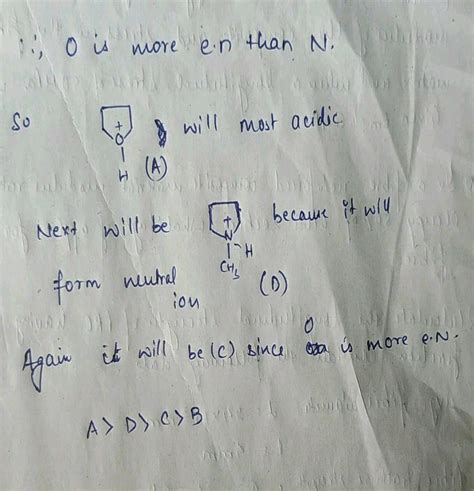 ∴, O is more e.n than N.
So
+
O
H (A) will most acidic
Next will be
+
N
H
CH3
(D) because it will
form neutral
ion
Again it will be (C) since O is more e.N.
A > D > C > B